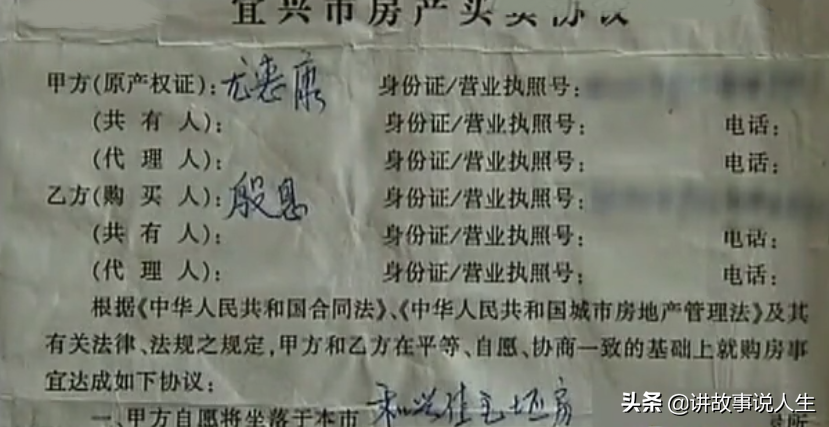 宜兴市房产买卖协议
甲方(原产权证):尤惠康 身份证/营业执照号:
(共有人): 身份证/营业执照号: 电话:
(代理人): 身份证/营业执照号: 电话:
乙方(购买人):殷恩 身份证/营业执照号:
(共有人): 身份证/营业执照号: 电话:
(代理人): 身份证/营业执照号: 电话:
根据《中华人民共和国合同法》、《中华人民共和国城市房地产管理法》及其
有关法律、法规之规定,甲方和乙方在平等、自愿、协商一致的基础上就购房事
宜达成如下协议:
一、甲方自愿将坐落于本市
头条 @讲故事说人生